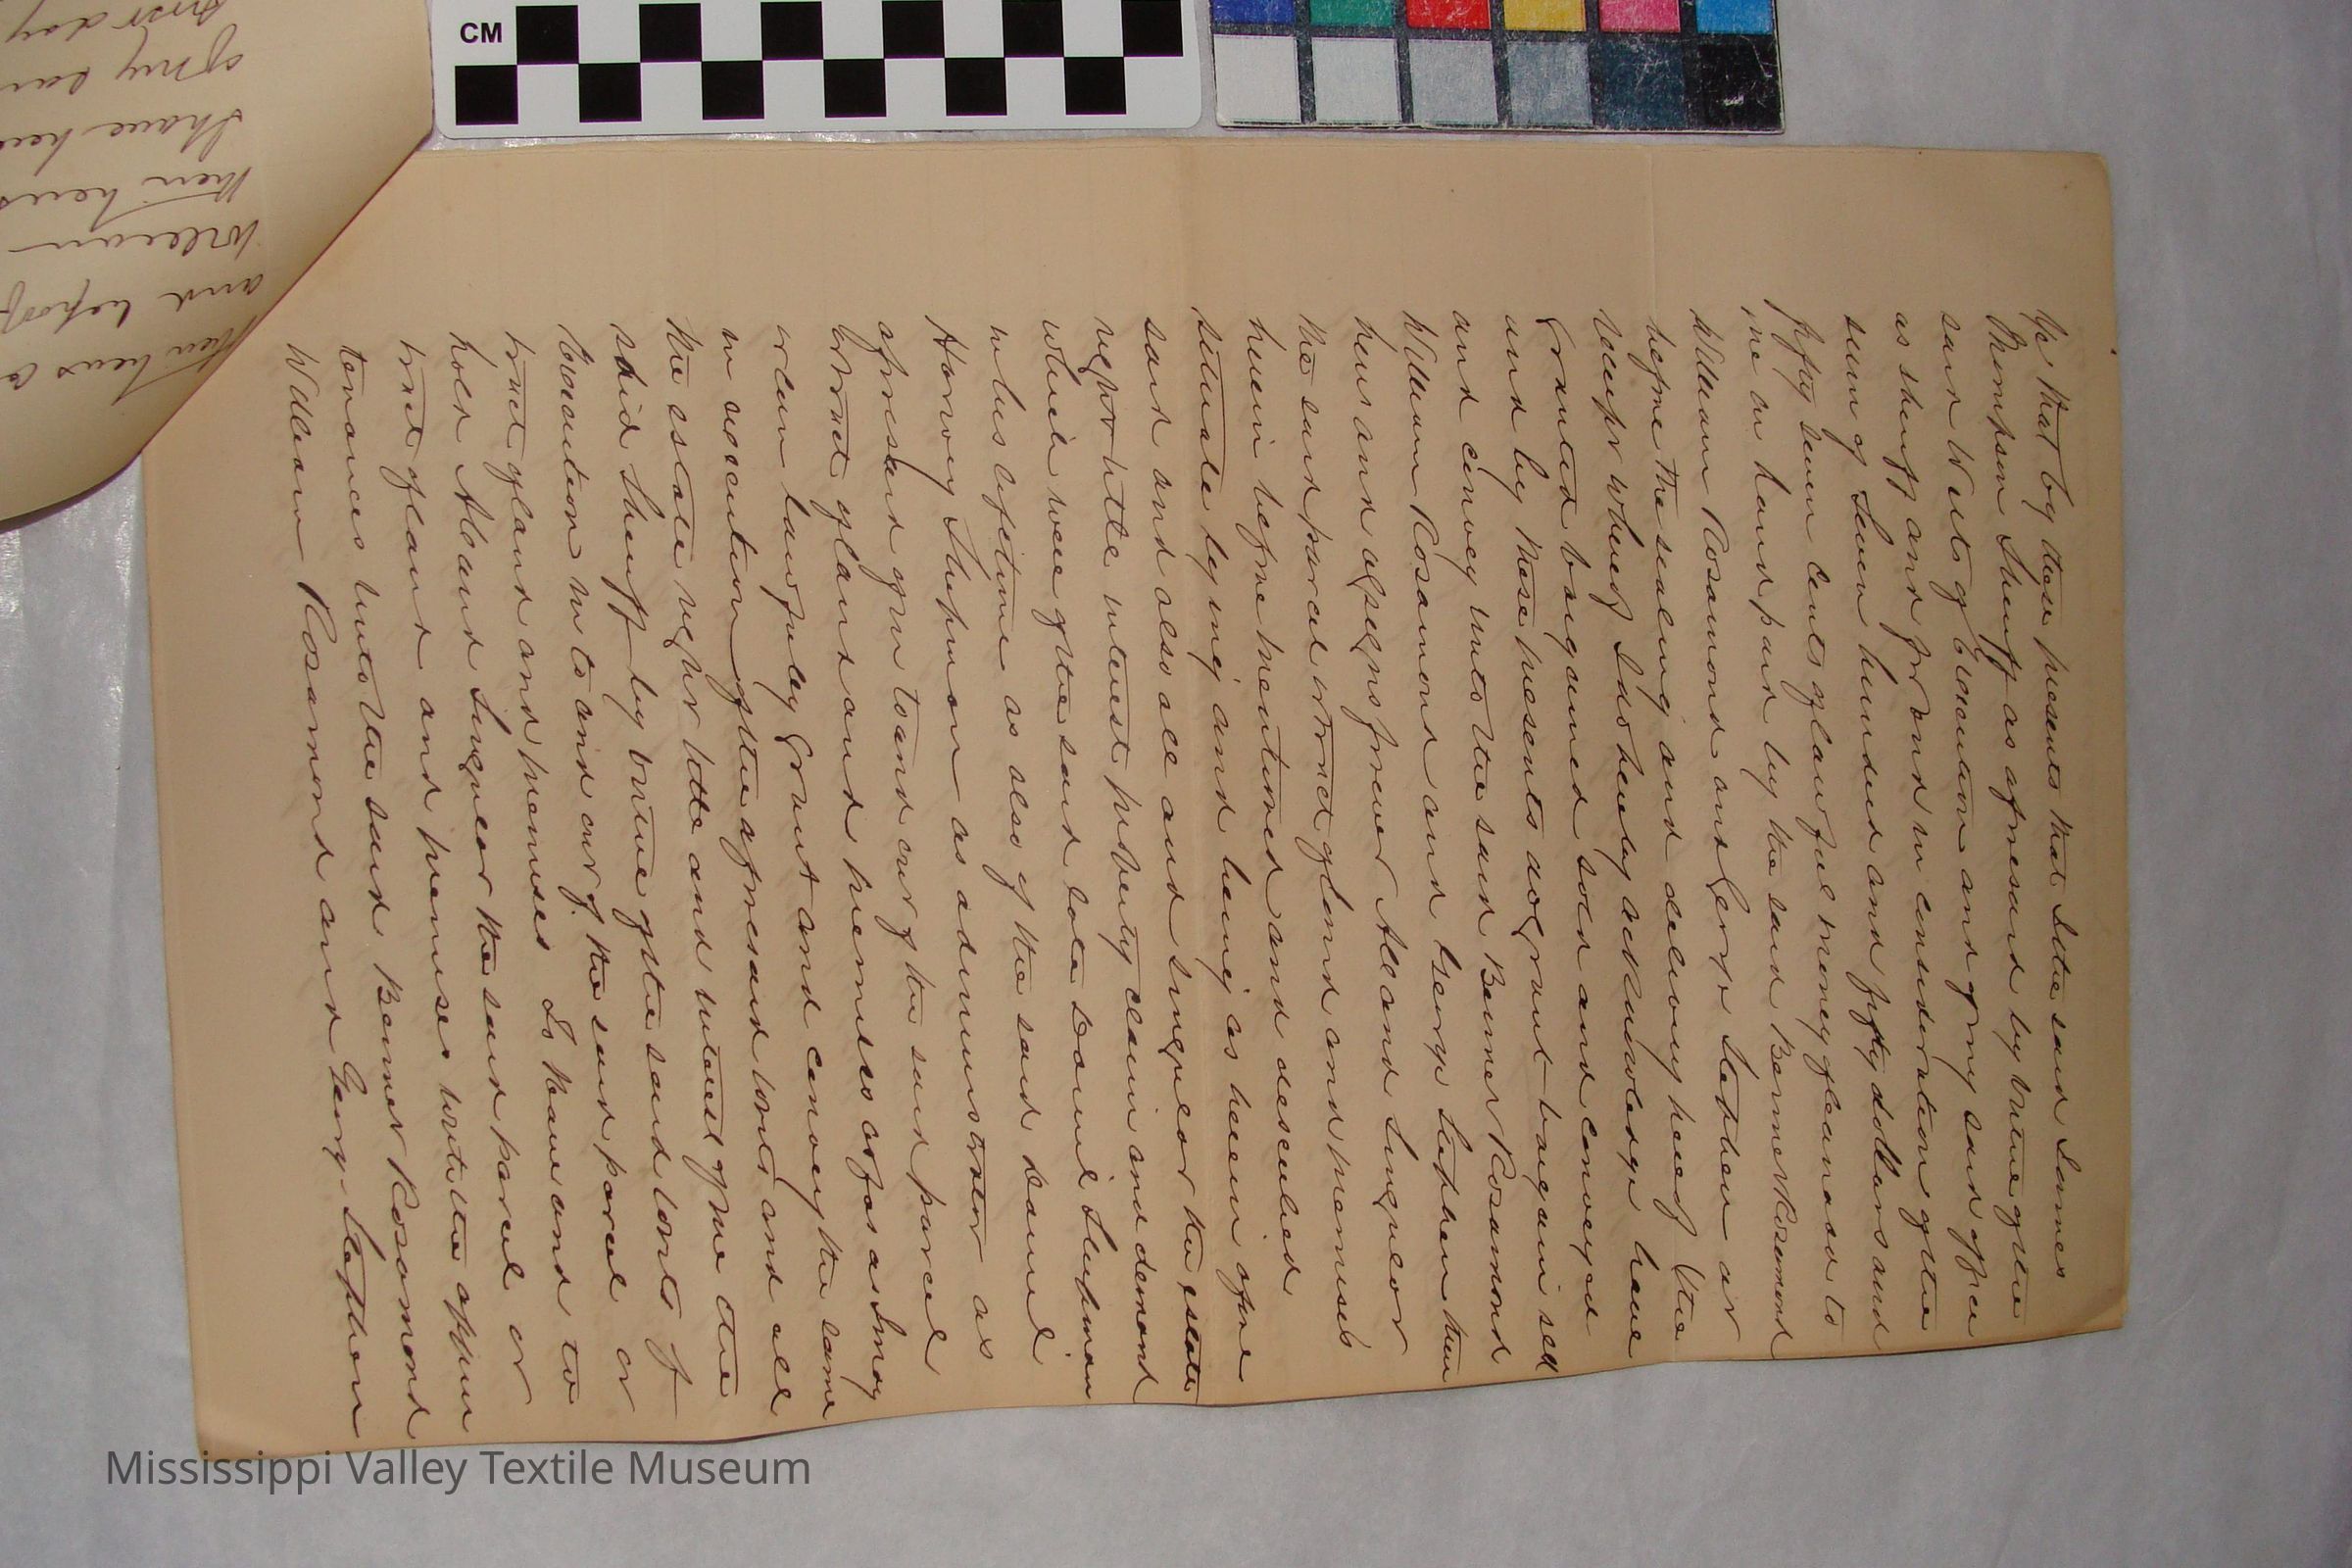 Ye that by these presents that I the said James
Thompson Sheriff as aforesaid by virtue of the
said Writ of Execution and of my said office
as sheriff and for and in consideration of the
sum of Seven hundred and fifty dollars and
fifty seven cents of lawful money of Canada to
me in hand paid by the said Bennet Rosamond
William Rosamond and George Stephen at or
before the sealing and delivery hereof the
receipt whereof I do hereby acknowledge have
Granted bargained sold and conveyed
and by these presents do grant bargain sell
and convey unto the said Bennet Rosamond
William Rosamond and George Stephen their
heirs and assigns forever All and Singular
the said parcel or tract of land and premises
herein before mentioned and described
situate lying and being as herein afore
said and also all and singular the estate
right title interest property claim and demand
which were of the said late Daniel Shipman
in his lifetime as also of the said Daniel
Harvey Shipman as administrator as
aforesaid of in to and out of the said parcel
or tract of land and premises as far as I may
or can lawfully grant and convey the same
in execution of the aforesaid writ and all
the estate right title and interest of me the
said Sheriff by virtue of the said writ of
Execution in to and out of the said parcel or
tract of land and premises To have and to
hold All and Singular the said parcel or
tract of land and premises with the appur
tenances unto the said Bennet Rosamond
William Rosamond and George Stephen
their heirs
and
William
their heirs
I have
of my
first day
CM
Mississippi Valley Textile Museum